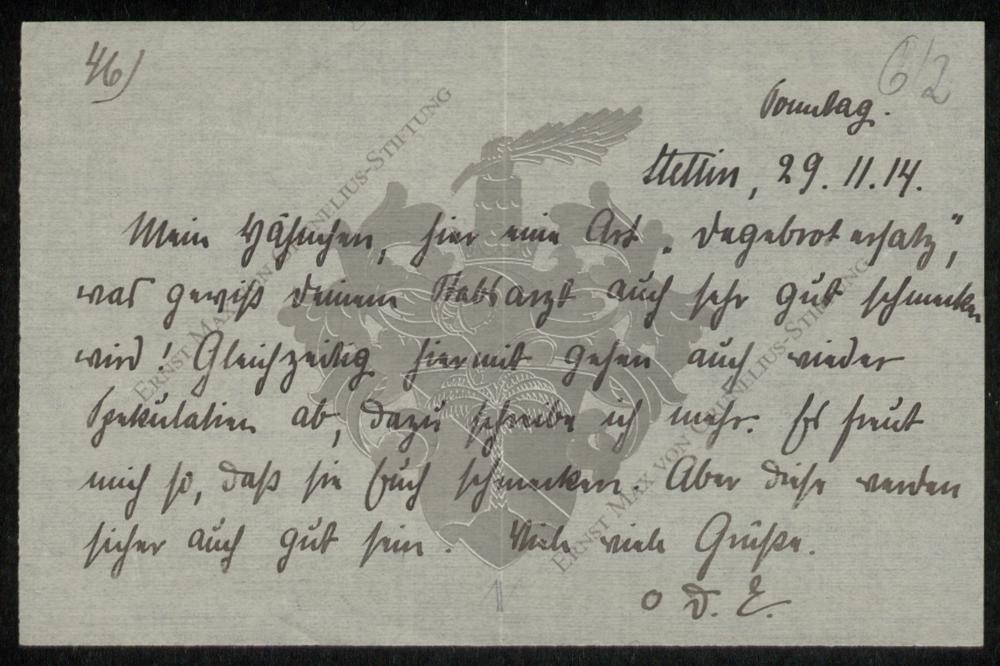 46)
6/2
Sonntag.
Stettin, 29. 11. 14.
Mein Hähnchen, hier eine Art „Degebrotersatz",
was gewiß Deinem Stabsarzt auch sehr gut schmecken
wird! Gleichzeitig hiermit gehen auch wieder
Spekulatien ab, dazu schreibe ich mehr. Es freut
mich so, daß sie Euch schmecken. Aber diese werden
sicher auch gut sein. Viele viele Grüße.
D. E.
1
ERNST MAX VON GRUNELIUS-STIFTUNG
ERNST MAX VON GRUNELIUS-STIFTUNG